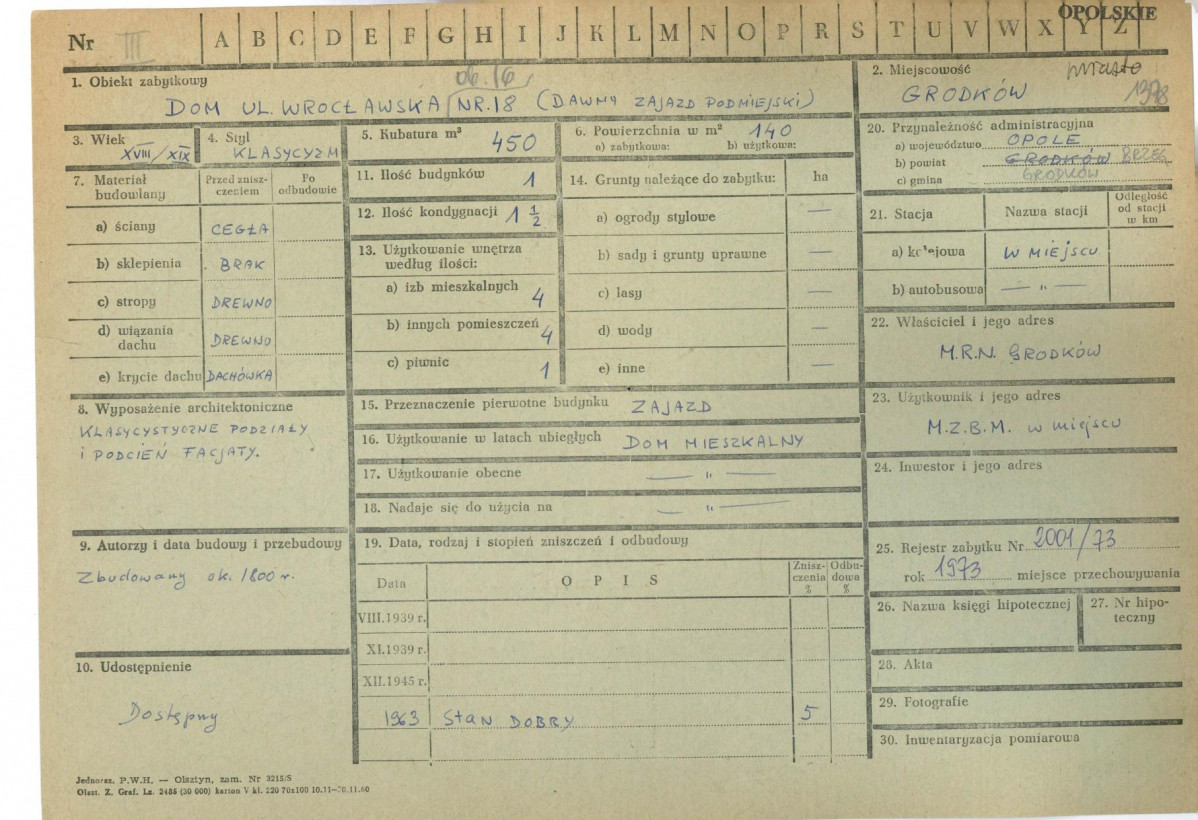 OPOLSKIE
Nr III A B C D E F G H I J K L M N O P R S T U V W X Y Z
1. Obiekt zabytkowy
06.16
DOM UL. WROCŁAWSKA NR.18 (DAWNY ZAJAZD PODMIEJSKI)
2. Miejscowość miasto
GRODKÓW 1398
3. Wiek
XVIII/XIX
4. Styl
KLASYCYZM
5. Kubatura m³ 450
6. Powierzchnia w m² 140
a) zabytkowa: b) użytkowa:
7. Materiał budowlany
Przed zniszczeniem
Po odbudowie
a) ściany CEGŁA
b) sklepienia BRAK
c) stropy DREWNO
d) wiązania dachu DREWNO
e) krycie dachu DACHÓWKA
8. Wyposażenie architektoniczne
KLASYCYSTYCZNE PODZIAŁY
i PODCIEŃ FACJATY.
9. Autorzy i data budowy i przebudowy
Zbudowany ok. 1800 r.
10. Udostępnienie
Dostępny
11. Ilość budynków 1
12. Ilość kondygnacji 1 1/2
13. Użytkowanie wnętrza
według ilości:
a) izb mieszkalnych 4
b) innych pomieszczeń 4
c) piwnic 1
14. Grunty należące do zabytku: ha
a) ogrody stylowe —
b) sady i grunty uprawne —
c) lasy —
d) wody —
e) inne —
15. Przeznaczenie pierwotne budynku ZAJAZD
16. Użytkowanie w latach ubiegłych DOM MIESZKALNY
17. Użytkowanie obecne — " —
18. Nadaje się do użycia na — " —
19. Data, rodzaj i stopień zniszczeń i odbudowy
Data O P I S Zniszczenia % Odbudowa %
VIII.1939 r.
XI.1939 r.
XII.1945 r.
1963 Stan DOBRY 5
20. Przynależność administracyjna
a) województwo OPOLE
b) powiat GRODKÓW BRZEG
c) gmina GRODKÓW
21. Stacja Nazwa stacji Odległość od stacji w km
a) kolejowa W MIEJSCU
b) autobusowa — " —
22. Właściciel i jego adres
M.R.N. GRODKÓW
23. Użytkownik i jego adres
M.Z.B.M. w miejscu
24. Inwestor i jego adres
25. Rejestr zabytku Nr 2001/73
rok 1973 miejsce przechowywania
26. Nazwa księgi hipotecznej
27. Nr hipoteczny
28. Akta
29. Fotografie
30. Inwentaryzacja pomiarowa
Jednoraz. P.W.H. — Olsztyn, zam. Nr 3215/S
Olszt. Z. Graf. Lz. 2485 (30 000) karton V kl. 220 70x100 10.11—30.11.60